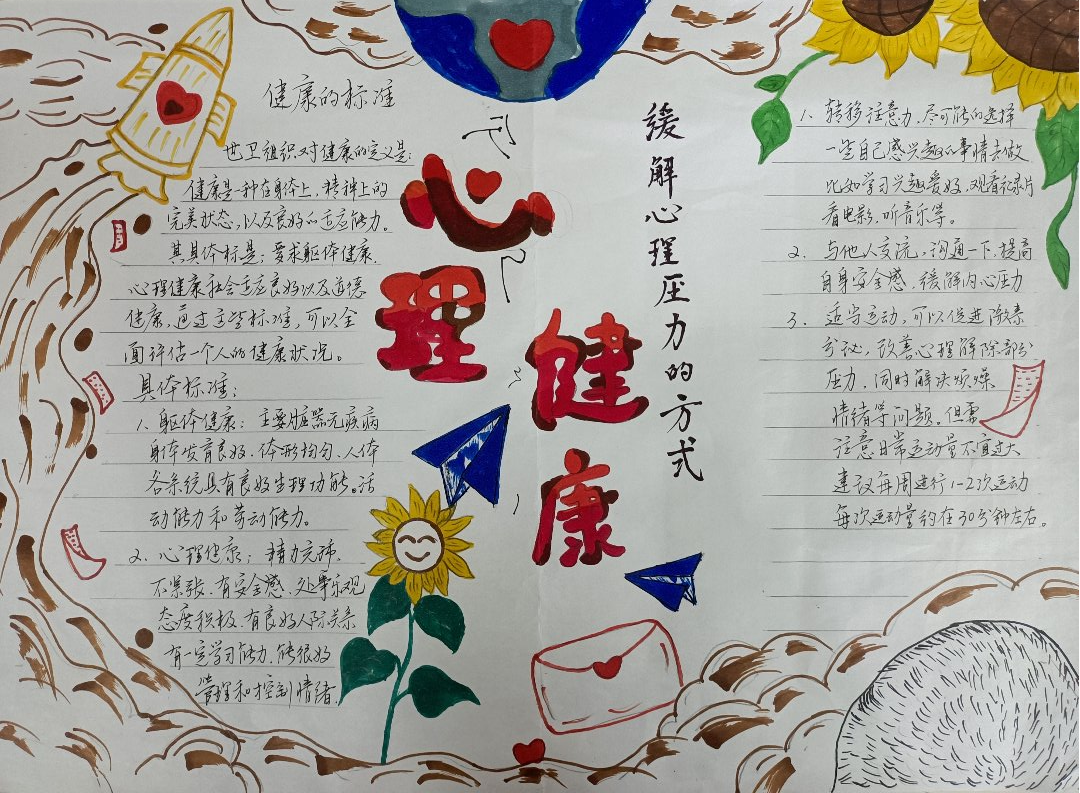 健康的标准
世卫组织对健康的定义是:
健康是一种在身体上,精神上的
完美状态,以及良好的适应能力。
其具体标是:要求躯体健康、
心理健康社会适应良好以及道德
健康,通过这些标准,可以全
面评估一个人的健康状况。
具体标准:
1、躯体健康:主要脏器无疾病
身体发育良好、体形均匀、人体
各系统具有良好生理功能。活
动能力和劳动能力。
2、心理健康:精力充沛、
不紧张、有安全感、处事乐观
态度积极、有良好人际关系
有一定学习能力、能很好
管理和控制情绪.
心理
健康
缓解心理压力的方式
1、转移注意力,尽可能的选择
一些自己感兴趣的事情去做
比如学习兴趣爱好,观看记录片
看电影、听音乐等。
2、与他人交流,沟通一下,提高
自身安全感、缓解内心压力
3、适当运动,可以促进激素
分泌,改善心理解除部分
压力,同时解决烦燥
情绪等问题。但需
注意日常运动量不宜过大
建议每周进行1-2次运动
每次运动量约在30分钟左右。